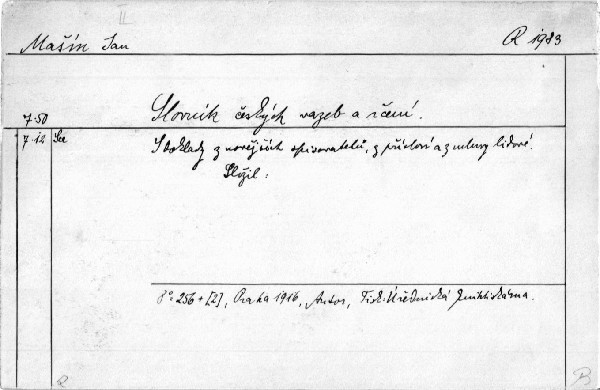 II
Mašín Jan R 1983
7.50 Slovník českých vazeb a rčení.
7.12 Sce S doklady z novějších spisovatelů, z přísloví a z mluvy lidové.
Složil:
8° 256 + [2], Praha 1916, Autor, Tisk. Úřednická knihtiskárna.
R B